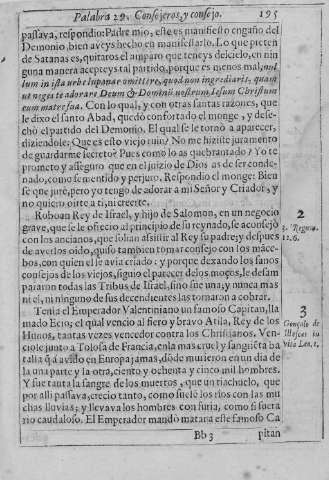 Palabra 29. Consejeros, y consejo. 195
passava, respondio: Padre mio, este es manifiesto engaño del
Demonio, bien aveys hecho en manifestarlo. Lo que preten
de Satanas es, quitaros el amparo que teneys del cielo, en nin
guna manera accepteys tal partido, porque es menos mal, nul
lum in ista urbe lupanar omittere, quod non ingrediaris, quàm
ut neges te adorare Deum & Dominũ nostrum Iesum Christum
cum matre sua. Con lo qual, y con otras santas razones, que
le dixo el santo Abad, quedò confortado el monge, y dese-
chò el partido del Demonio. El qual se le tornò a aparecer,
diziendole; Que es esto viejo ruin? No me hiziste juramento
de guardarme secreto? Pues como las quebrantado? Yo te
prometo y asseguro que en el juizio de Dios as de ser conde-
nado, como fementido y perjuro. Respondio el monge: Bien
se que jurè, pero yo tengo de adorar a mi Señor y Criador, y
no quiero oirte a ti, ni creerte.
Roboan Rey de Israel, y hijo de Salomon, en un negocio
grave, que se le ofrecio al principio de su reynado, se aconsejò
con los ancianos, que solian assistir al Rey su padre; y despues
de averlos oido, quiso tambien tomar consejo con los mãce-
bos, con quien el se avia criado: y porque dexando los sanos
consejos de los viejos, siguio el parecer de los moços, le desam
pararon todas las Tribus de Israel, sino fue una, y nunca mas
ni el, ni ninguno de sus decendientes las tornaron a cobrar.
2
3. Regum.
12. 6.
Tenia el Emperador Valentiniano un famoso Capitan, lla
mado Ecio, el qual vencio al fiero y bravo Atila, Rey de los
Hunos, tantas vezes vencedor contra los Christianos. Ven-
ciole junto a Tolosa de Francia, en la mas cruel y sangriẽta ba
talla q̃ à avido en Europa; jamas, dõde murieron en un dia de
la una parte y la otra, ciento, y ochenta y cinco mil hombres.
Y fue tanta la sangre de los muertos, que un riachuelo, que
por alli passava, crecio tanto, como suelẽ los rios con las mu
chas lluvias; y llevava los hombres con furia, como si fuera
rio caudaloso. El Emperador mandò matar a este famoso Ca
3
Gonçalo de
Illescas
vita Leo. 1.
Bb 3 pitan